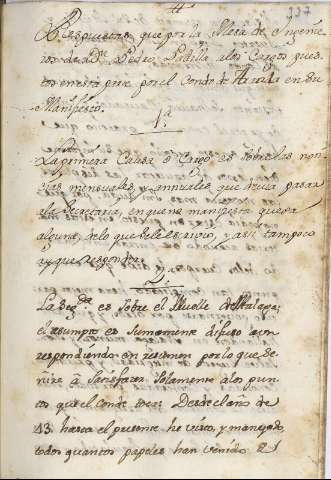 337
Respuestas que por la Mesa de Ingenie-
ros de Dn. Pedro Padilla a los Cargos pues-
tos en esta parte por el Conde de Aranda en su
Manifiesto.
1.a
La primera Causa o Cargo es sobre las noti-
cias mensuales y annuales, que devia pasar
a la Secretaria, en que no manifiesta queja
alguna, de lo que se le escrivio, y asi tampoco
ay que responder.
La seg.da es sobre el Muelle de Malaga;
el asumpto es sumamente difuso
respondiendo en resumen por lo que se
mire à satisfazer solamente a los pun-
tos que el Conde toca: Desde el año de
43 hasta el presente he visto, y manejado,
todos quantos papeles han venido